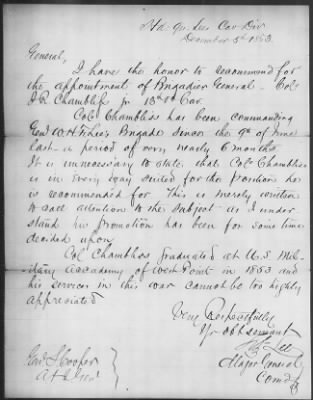 Hd. Qrs. Lees Cav. Div
December 5th 1863.
General,
I have the honor to recommend for
the appointment of Brigadier General - Col.
J R Chambliss Jr 13th Va Cav.
Col. Chambliss has been commanding
Genl W H F Lee's Brigade since the 9th of June
last - a period of very nearly 6 months.
It is unnecessary to state that Col. Chambliss
is in every way suited for the position he
is recommended for. This is merely written
to call attention to the subject - as I under-
stand his promotion has been for some time
decided upon.
Col Chambliss graduated at U. S. Mil-
itary Academy at West Point in 1853 and
his services in this war cannot be too highly
appreciated
Very Respectfully
Yr obt servant
Lee
Major General
Comdg
Genl S Cooper
A & I Genl